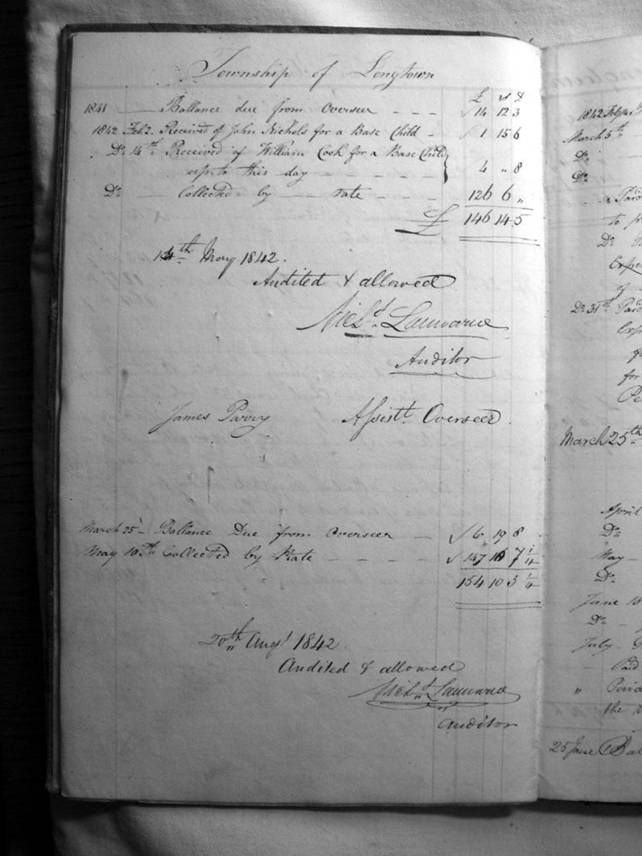 Township of Longtown
£ s d
1841 — Ballance due from Overseer - - - 14 12 3
1842 Feb 2. Received of John Nichols for a Base Child - 1 15 6
Do 14th Received of William Cook for a Base Child
up to this day - - - 4 " 8
Do - Collected by rate - - - 126 6 "
£ 146 14 5
14th May 1842.
Audited & allowed
Auditor
James Parry Assistt. Overseer.
March 25 - Ballance Due from Overseer - 6 19 8
May 10th Collected by Rate - - - 147 10 7 1/4
154 10 3 1/4
20th Augt 1842
Audited & allowed
Auditor
1842
March 5th
Do
Do
Paid
to
Do
Do 31st Paid
for
March 25th
April
Do
May -
Do
June 10
Do -
July
Paid
" Paid
the
25 June Bal